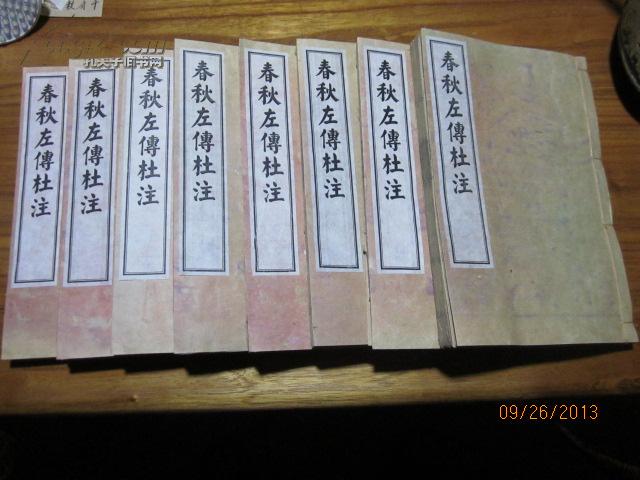 孔夫子旧书网
春秋左傳杜注
春秋左傳杜注
春秋左傳杜注
春秋左傳杜注
春秋左傳杜注
春秋左傳杜注
春秋左傳杜注
春秋左傳杜注
09/26/2013